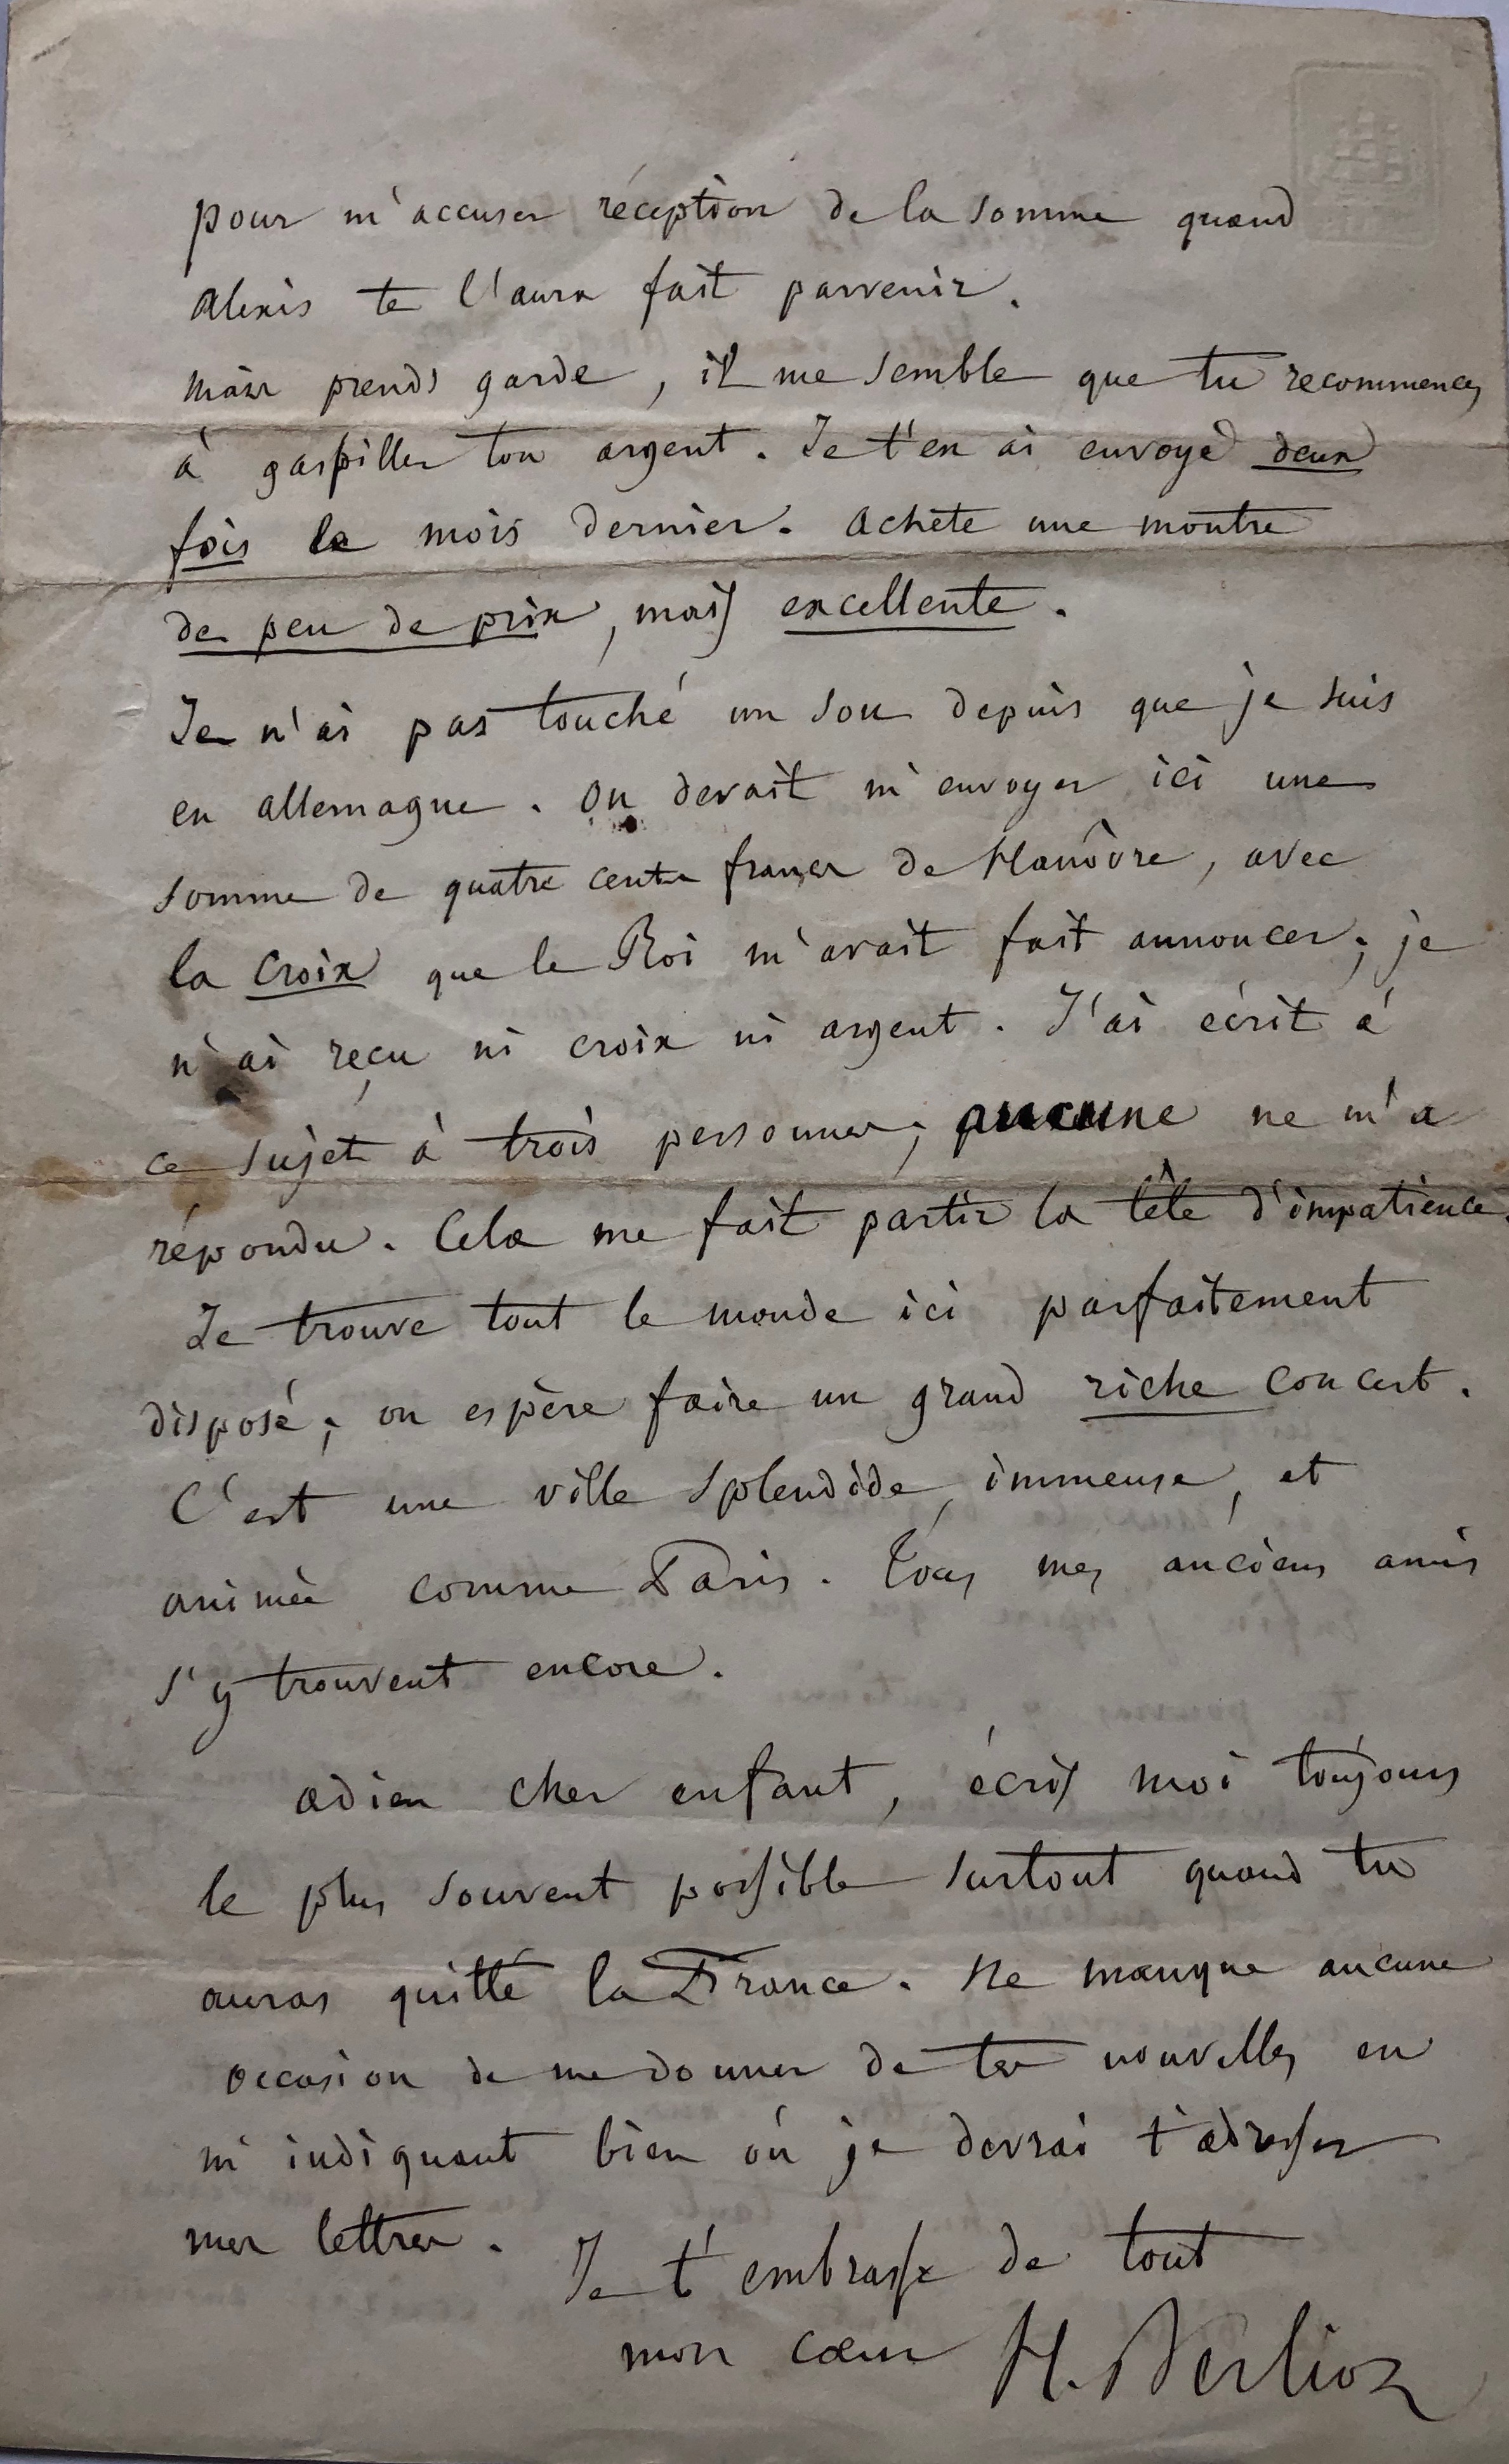 pour m'accuser réception de la somme quand
Alexis te l'aura fait parvenir.
mais prends garde, il me semble que tu recommences
à gaspiller ton argent. Je t'en ai envoyé deux
fois le mois dernier. achète une montre
de peu de prix, mais excellente.
Je n'ai pas touché un sou depuis que je suis
en allemagne. On devait m'envoyer ici une
somme de quatre cents francs de Hanôvre, avec
la Croix que le Roi m'avait fait annoncer; je
n'ai reçu ni croix ni argent. J'ai écrit à
ce sujet à trois personnes; aucune ne m'a
répondu. Cela me fait partir la tête d'impatience.
Je trouve tout le monde ici parfaitement
disposé; on espère faire un grand riche concert.
C'est une ville splendide, immense, et
animée comme Paris. Tous mes anciens amis
s'y trouvent encore.
adieu cher enfant, écris moi toujours
le plus souvent possible surtout quand tu
auras quitté la France. Ne manque aucune
occasion de me donner de tes nouvelles en
m'indiquant bien où je devrai t'adresser
mes lettres. Je t'embrasse de tout
mon cœur H. Berlioz